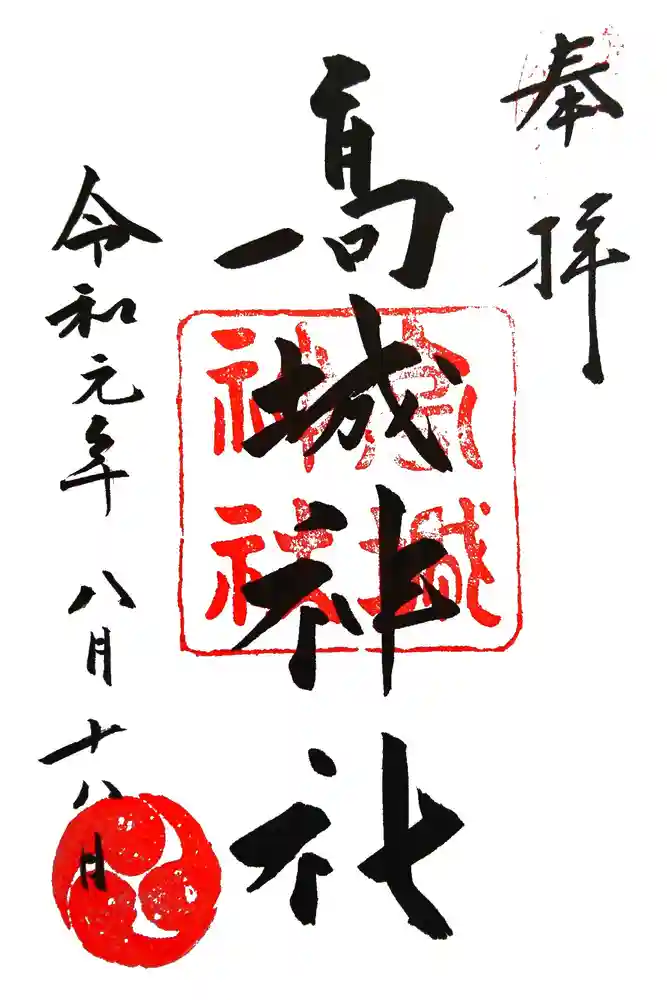 奉拝
高城神社
高城
神社
令和元年 八月十八日